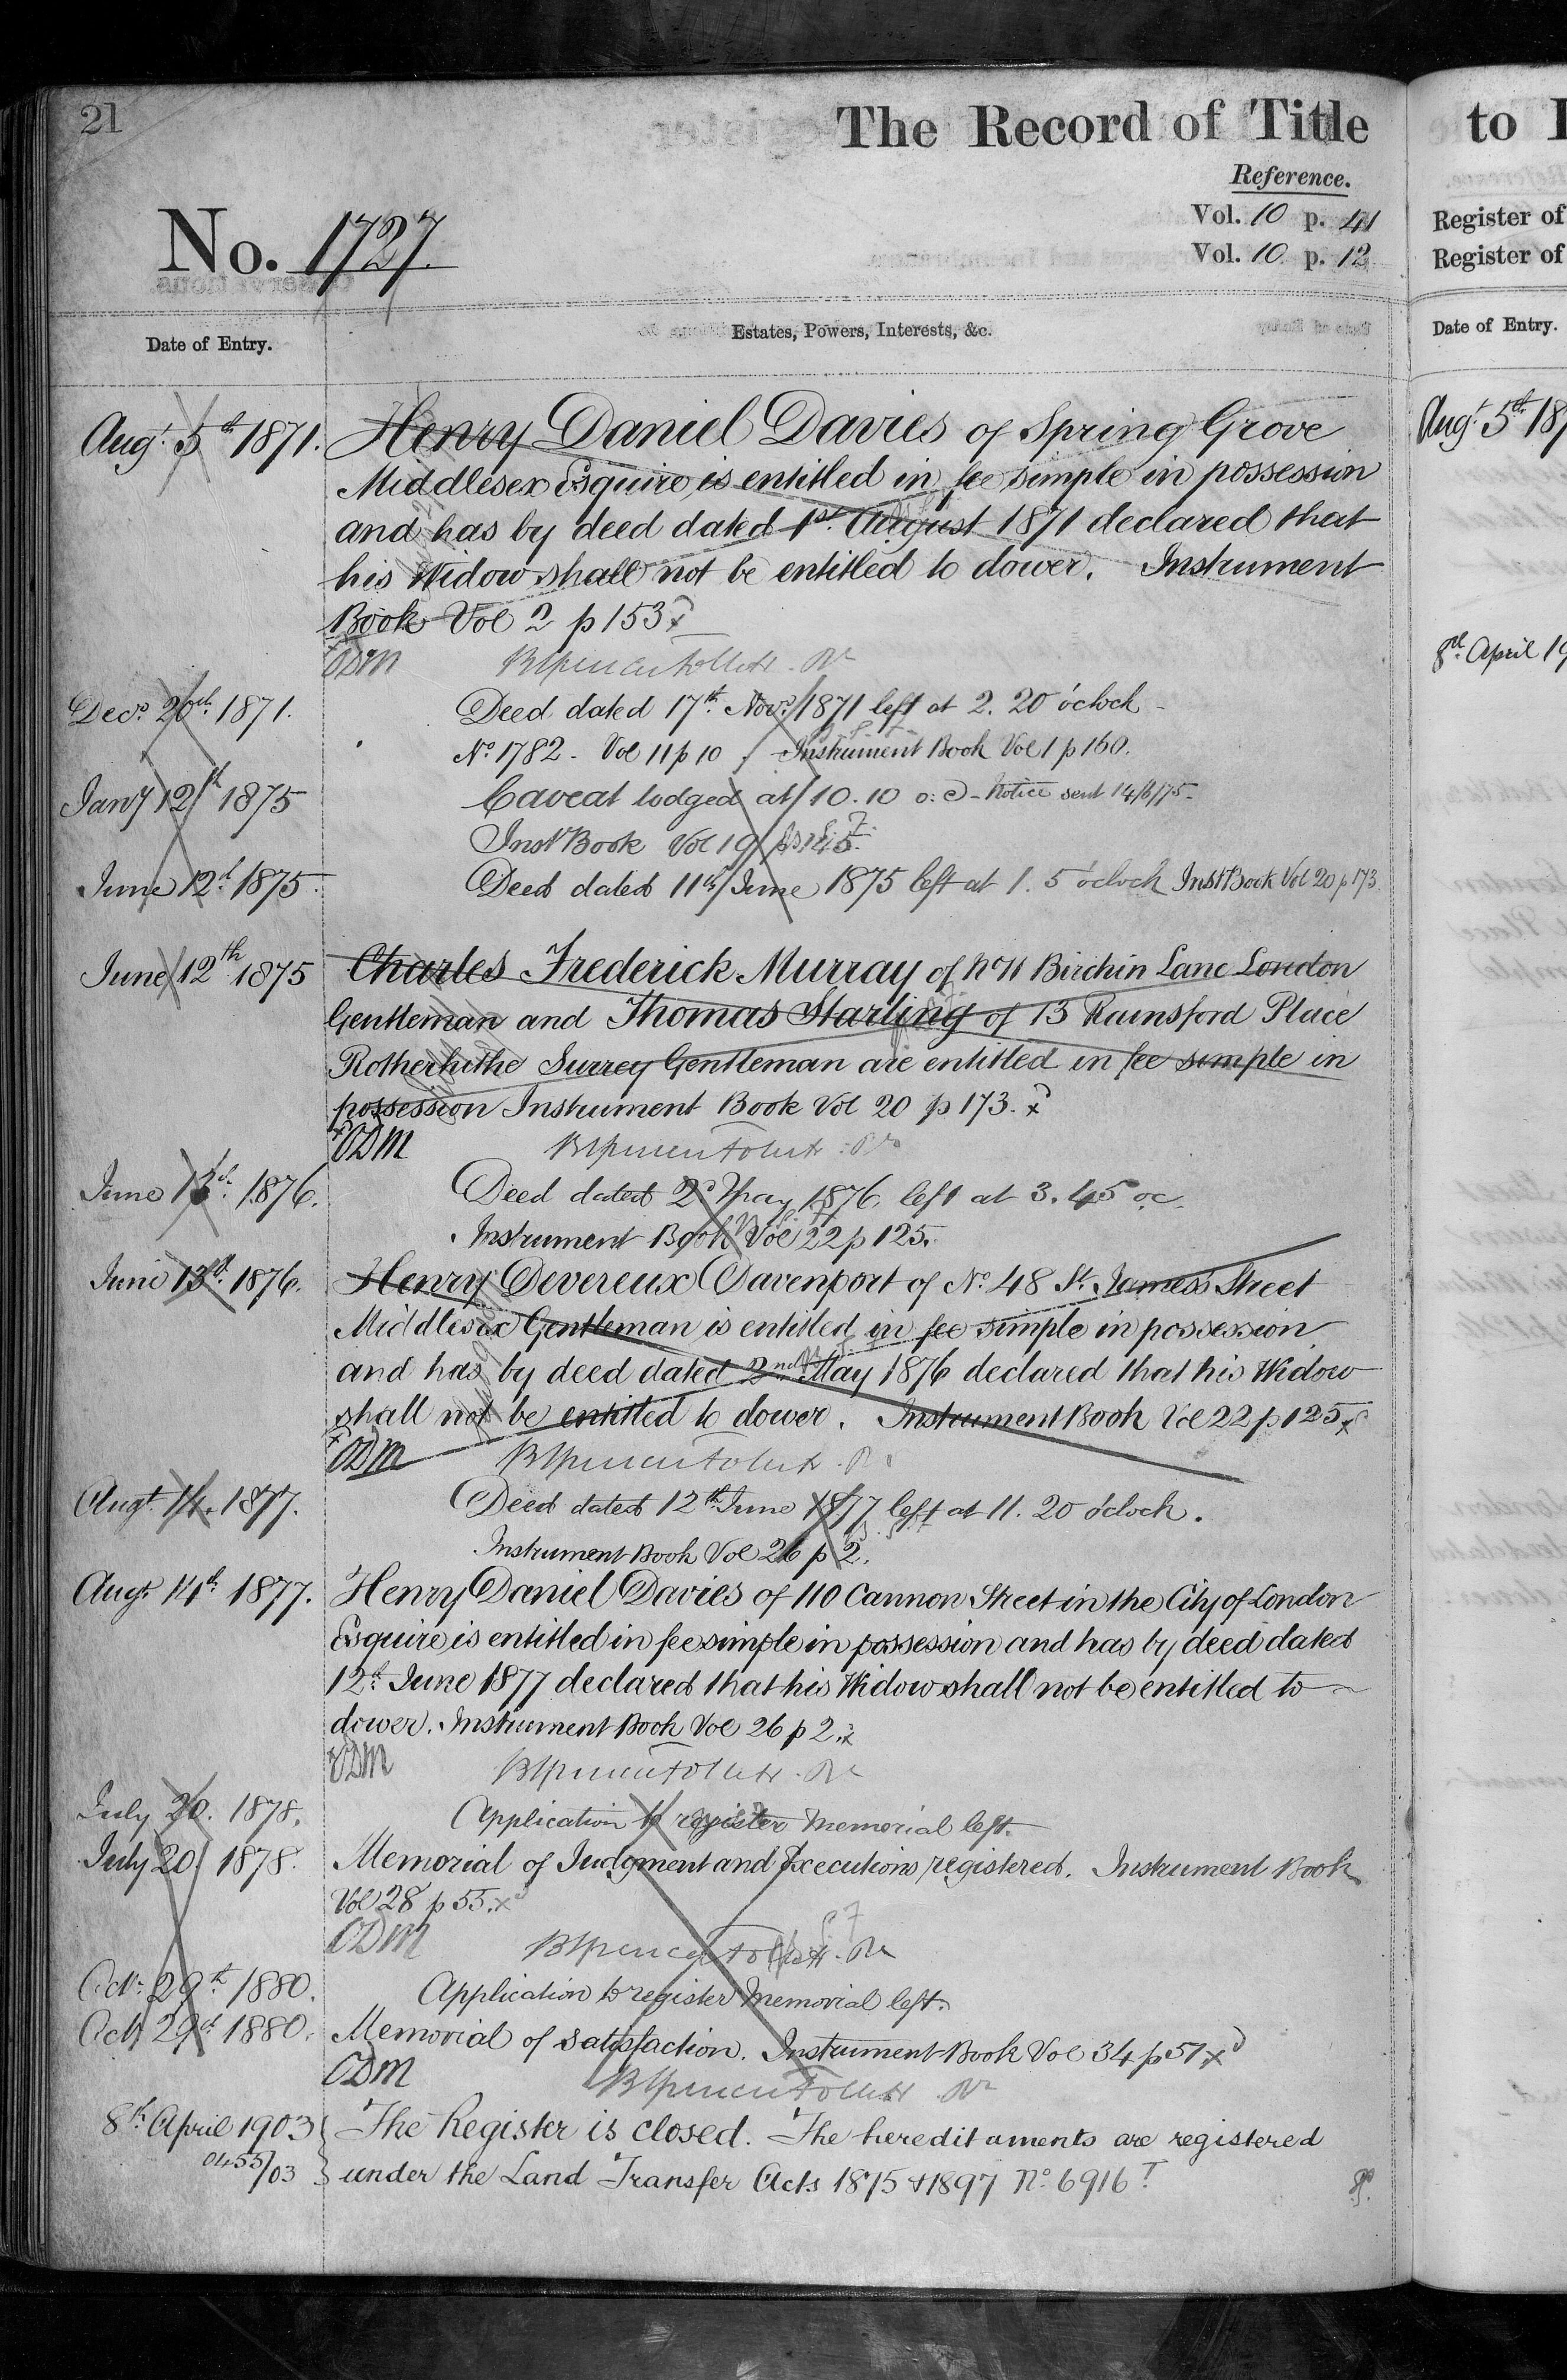 21
The Record of Title
to
Reference.
No. 1727.
Vol. 10 p. 41
Vol. 10 p. 12
Register of
Register of
Date of Entry.
Estates, Powers, Interests, &c.
Date of Entry.
Augt. 5th 1871. Henry Daniel Davies of Spring Grove
Augt. 5th 18
Middlesex Esquire is entitled in fee simple in possession
and has by deed dated 1st. August 1871 declared that
his Widow shall not be entitled to dower. Instrument
Book Vol 2 p 153 x
ODM
8th April 19
Decr. 20th. 1871. Deed dated 17th. Novr. 1871 left at 2. 20 o'clock
No. 1782 - Vol 11 p 10. Instrument Book Vol 1 p 160.
Jany 12th 1875 Caveat lodged at 10.10 o:c - Notice sent 14/6/75 -
Inst Book Vol 19 p 145.
June 12th 1875. Deed dated 11th June 1875 left at 1. 5 o'clock Inst Book Vol 20 p 173.
June 12th 1875 Charles Frederick Murray of No 11 Birchin Lane London
Gentleman and Thomas Starling of 13 Rainsford Place
Rotherhithe Surrey Gentleman are entitled in fee simple in
possession Instrument Book Vol 20 p 173. x
ODM
June 13th. 1876. Deed dated 2d May 1876, left at 3.45 oc.
Instrument Book Vol 22 p 125.
June 13th. 1876. Henry Devereux Davenport of No. 48 St. James's Street
Middlesex Gentleman is entitled in fee simple in possession
and has by deed dated 2nd May 1876 declared that his Widow
shall not be entitled to dower. Instrument Book Vol 22 p 125 x
ODM
Augt. 14. 1877. Deed dated 12th June 1877 left at 11. 20 o'clock.
Instrument Book Vol 26 p 2.
Augt. 14th 1877. Henry Daniel Davies of 110 Cannon Street in the City of London
Esquire is entitled in fee simple in possession and has by deed dated
12th June 1877 declared that his Widow shall not be entitled to
dower. Instrument Book Vol 26 p 2. x
ODM
July 20. 1878. Application to register Memorial left.
July 20. 1878. Memorial of Judgment and Executions registered. Instrument Book
Vol 28 p 55. x
ODM
Octr. 29th 1880. Application to register Memorial left.
Octr 29th 1880. Memorial of satisfaction. Instrument Book Vol 34 p 51 x
ODM
8th. April 1903 The Register is closed. The hereditaments are registered
0455/03 under the Land Transfer Acts 1875 & 1897 No. 6916 T